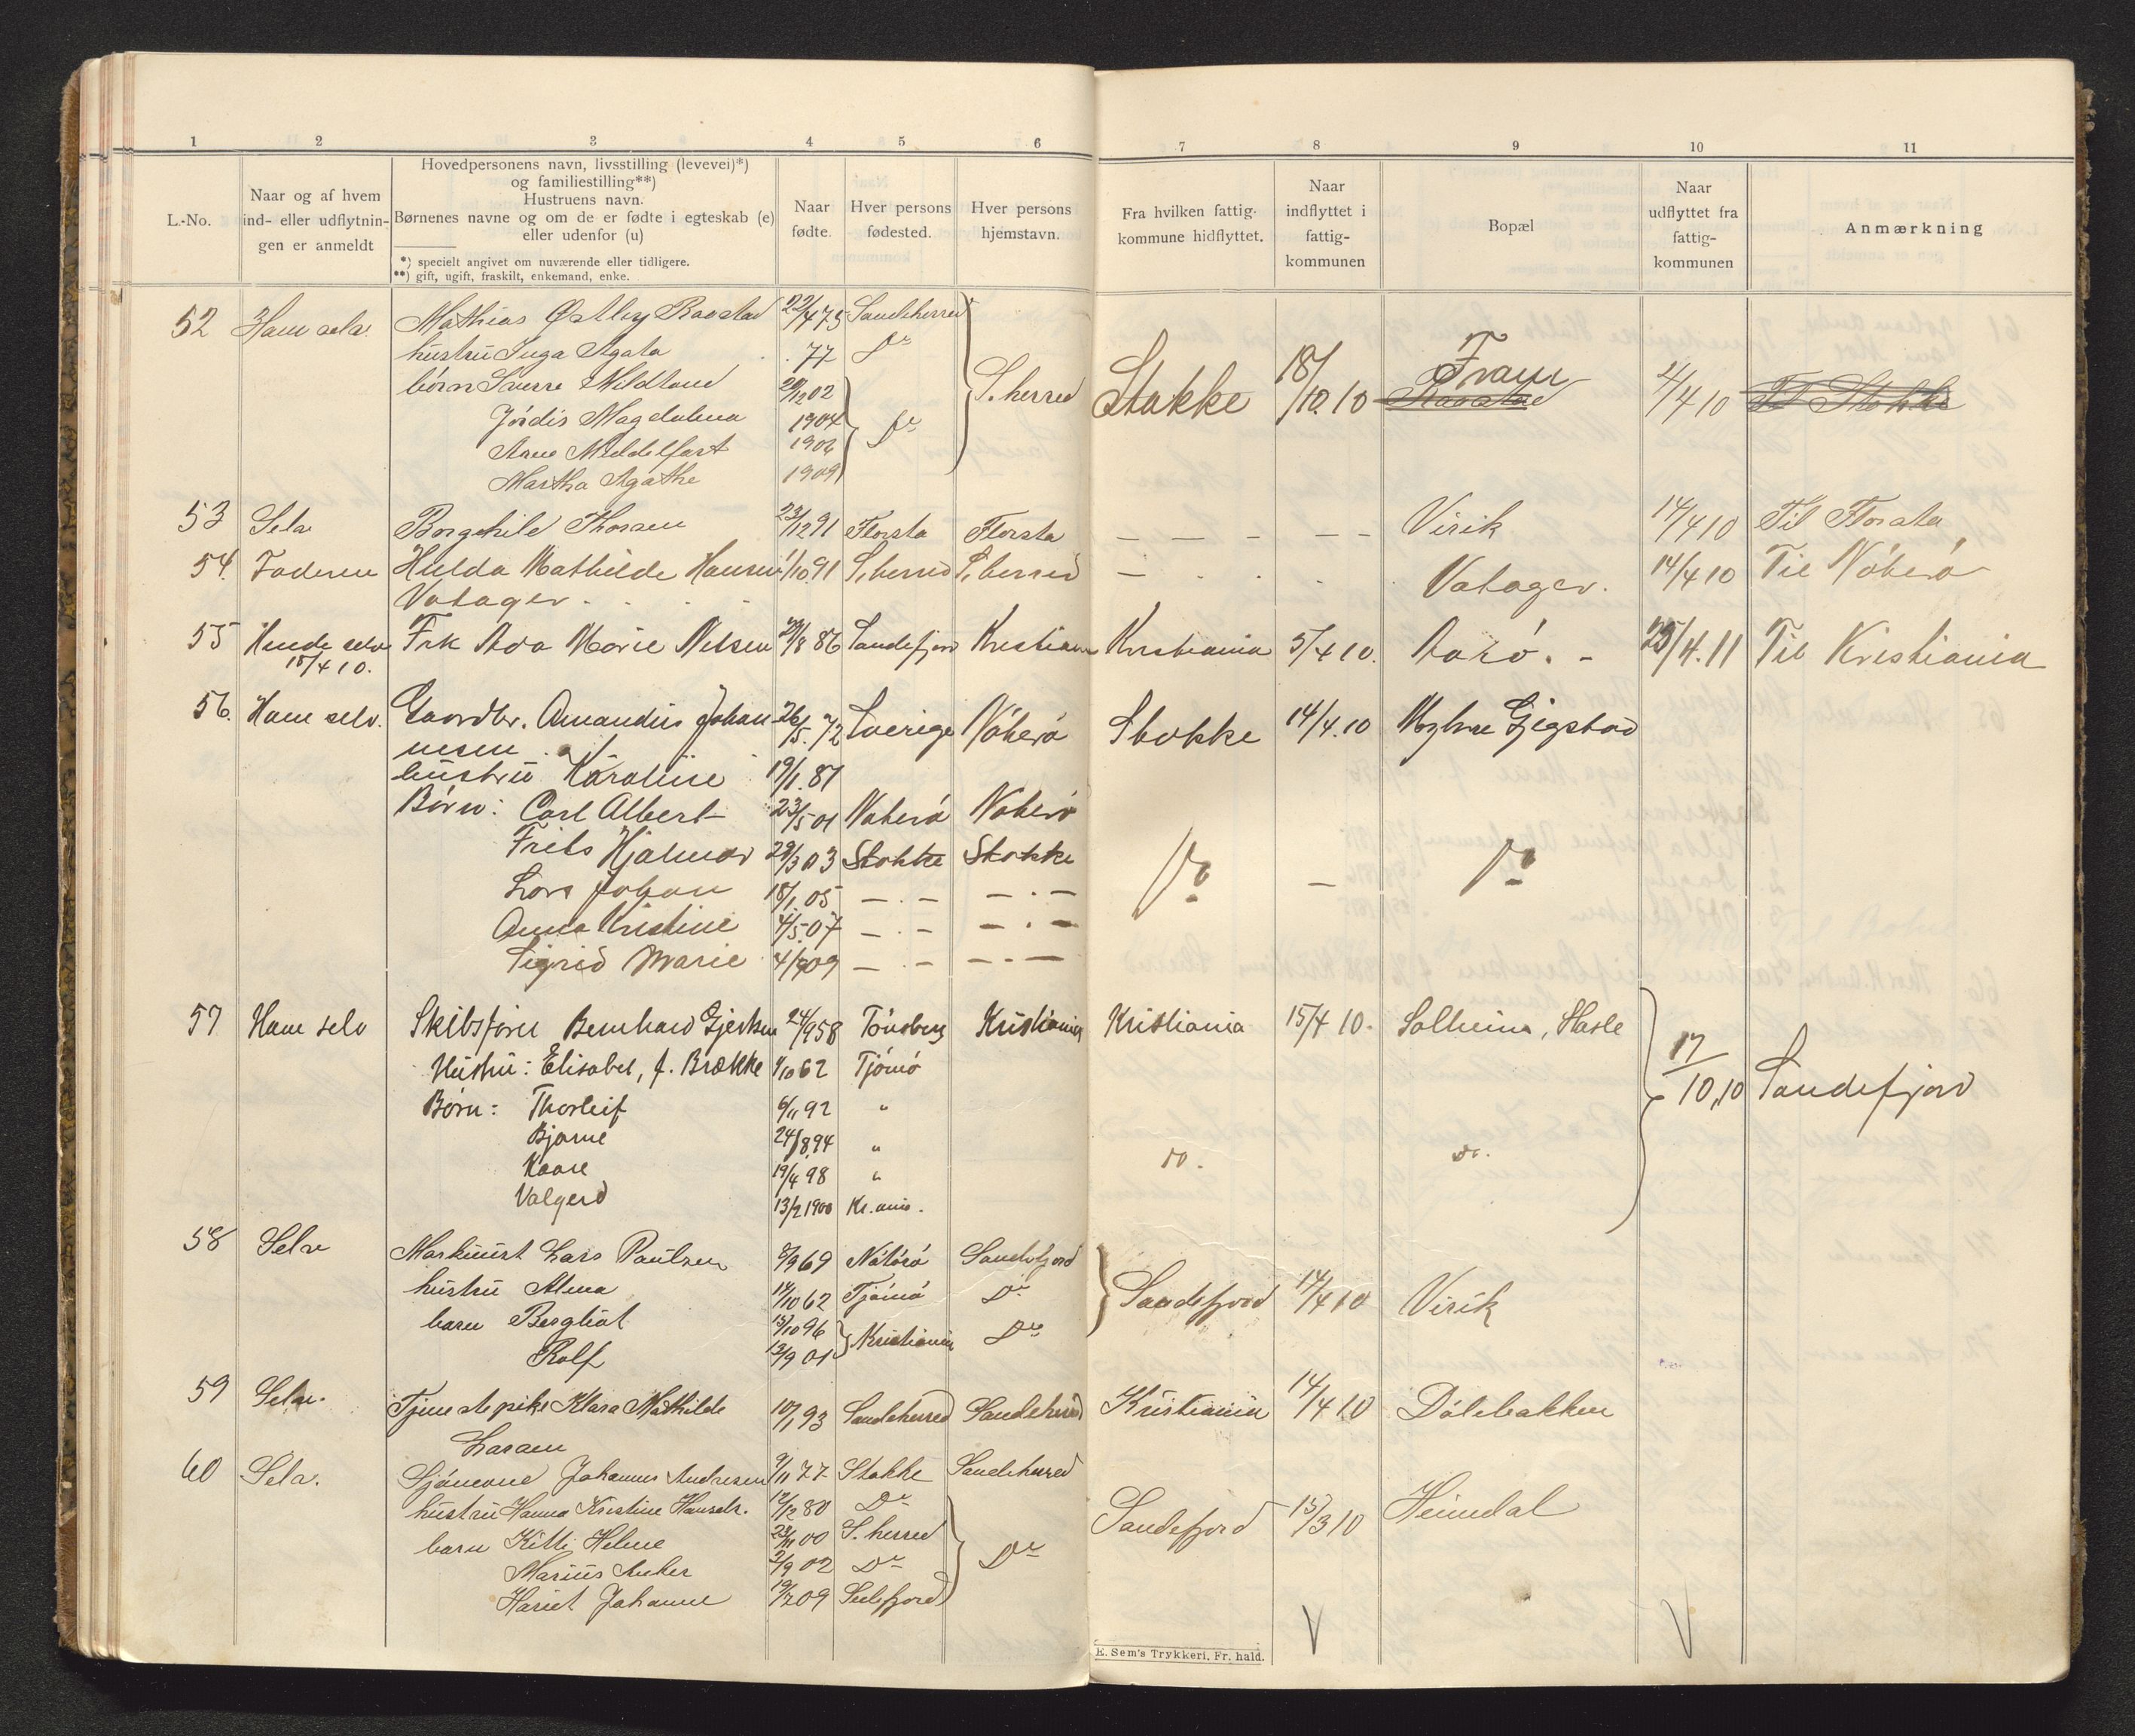 1 2 3 4 5 6 7 8 9 10 11
L.-No.
Naar og af hvem
ind- eller udflytnin-
gen er anmeldt
Hovedpersonens navn, livsstilling (levevei)*)
og familiestilling**)
Hustruens navn.
Børnenes navne og om de er fødte i egteskab (e)
eller udenfor (u)
*) specielt angivet om nuværende eller tidligere.
**) gift, ugift, fraskilt, enkemand, enke.
Naar
fødte.
Hver persons
fødested.
Hver persons
hjemstavn.
Fra hvilken fattig-
kommune hidflyttet.
Naar
indflyttet i
fattig-
kommunen
Bopæl
Naar
udflyttet fra
fattig-
kommunen
Anmærkning
52 Ham selv Mathias Østby Raastad 22/4 75 Sandeherred
hustru Inga Agata 77 Do
børn Sverre Mildland 02 S. herred Stokke 18/10.10 Fram /4 10
Jördis Magdalena 1904 Do
Arne Middelfart 1906
Martha Agathe 1909
53 Selv Borghild Thorsen 23/12 91 Florsta Florsta — — — — — Virik 14/4 10 Til Florsta
54. Faderen Hulda Mathilde Hansen 1/10.91 S. herred S. herred — Vatager. 14/4 10 Til Nöterö
Vatager
55 Hende selv Frk Ada Marie Nilsen 29/8 86 Sandefjord Kristiania Kristiania 5/4 10. 25/4.11 Til Kristiania
15/4 10.
56. Ham selv. Gaardbr. Amandus Johan- 26/5. 72 Sverige Nöterö Stokke 14/4.10 Myhre Gjegstad
nesen
hustru Karoline 19/1. 87
Børn: Carl Albert 23/5 01 Nöterö Nöterö
Frits Hjalmar 29/3 03 Stokke Stokke Do — Do
Lars Johan 18/1. 05 — . — — . —
Anna Kristine 4/5. 07 — . — — . —
Sigrid Marie 4/9 09 — . — — . —
57 Ham selv Skibsförer Bernhard Gjertsen 24/9 58 Tönsberg Kristiania Kristiania 15/4 10. Solheim, Hasle 17/10,10 Sandefjord
Hustru: Elisabet, f. Brække 1/10 62 Tjömö
Børn: Thorleif 6/11 92 "
Bjarne 24/8.94 "
Kaare 19/4 98 " do. do.
Valgerd 13/2 1900 Kr.ania.
58 Selv Maskinist Lars Paulsen 8/9 69 Nöterö Sandefjord
hustru Alma 14/10 62 Tjömö Do Sandefjord 14/4 10 Virik
barn Bergliot 15/10 96 Kristiania Do
Rolf 13/9 01
59 Selv. Tjenestepike Klara Mathilde 10/1 93 Sandeherred Sandeherred Kristiania 14/4 10 Dölebakken
Larsen
60 Selv. Sjömand Johannes Andresen 9/11 77 Stokke Sandeherred
hustru Hanna Kristine Hansdr. 12/12 80 Do Sandefjord 15/3 10 Heimdal
barn Kitti Helene 00 S. herred Do
Marius Anker 2/9 02 Do
Hariet Johanne 19/2 09 Sandefjord
V V
E. Sem's Trykkeri, Fr. hald.